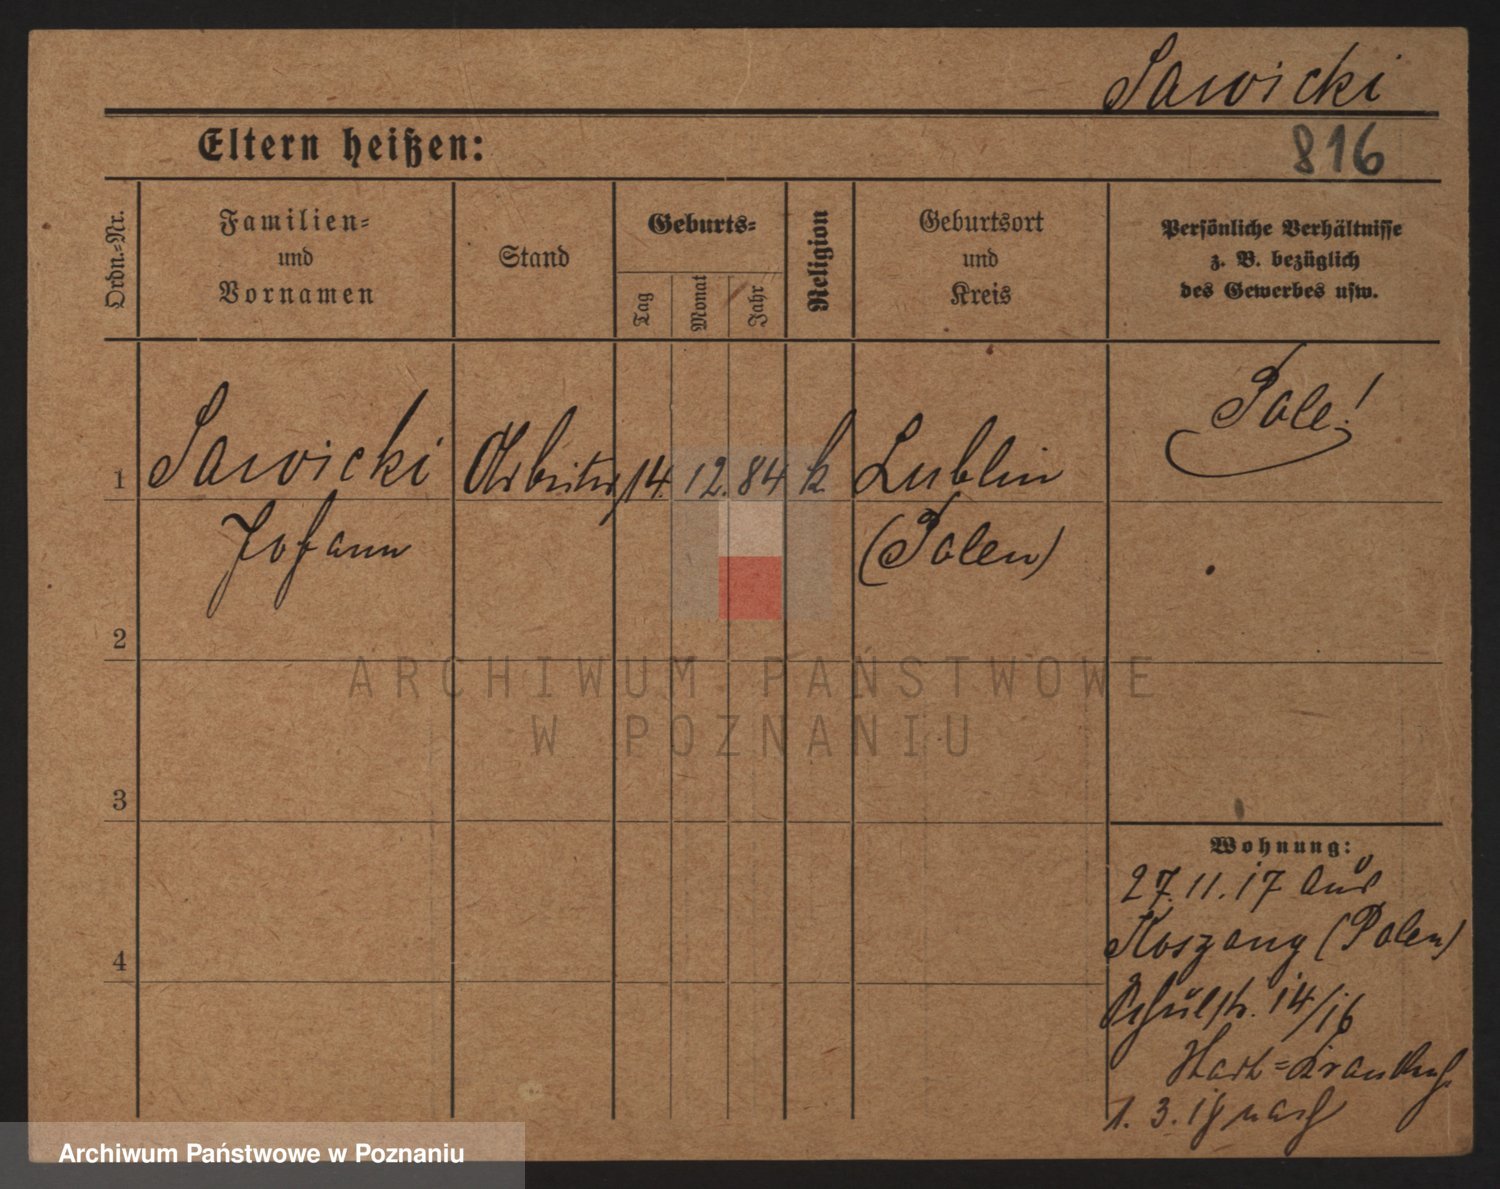 Sawicki
Eltern heißen:
816
Ordn.-Nr.
Familien-
und
Vornamen
Stand
Geburts-
Tag
Monat
Jahr
Religion
Geburtsort
und
Kreis
Persönliche Verhältnisse
z. B. bezüglich
des Gewerbes usw.
1
Sawicki
Johann
Arbeiter
14. 12. 84
k
Lublin
(Polen)
Pole!
2
3
4
Wohnung:
27.11.17 aus
(Polen)
Schulstr. 14/16
Stadt-Krankenh.
1. 3. 18 nach
ARCHIWUM PAŃSTWOWE
W POZNANIU
Archiwum Państwowe w Poznaniu